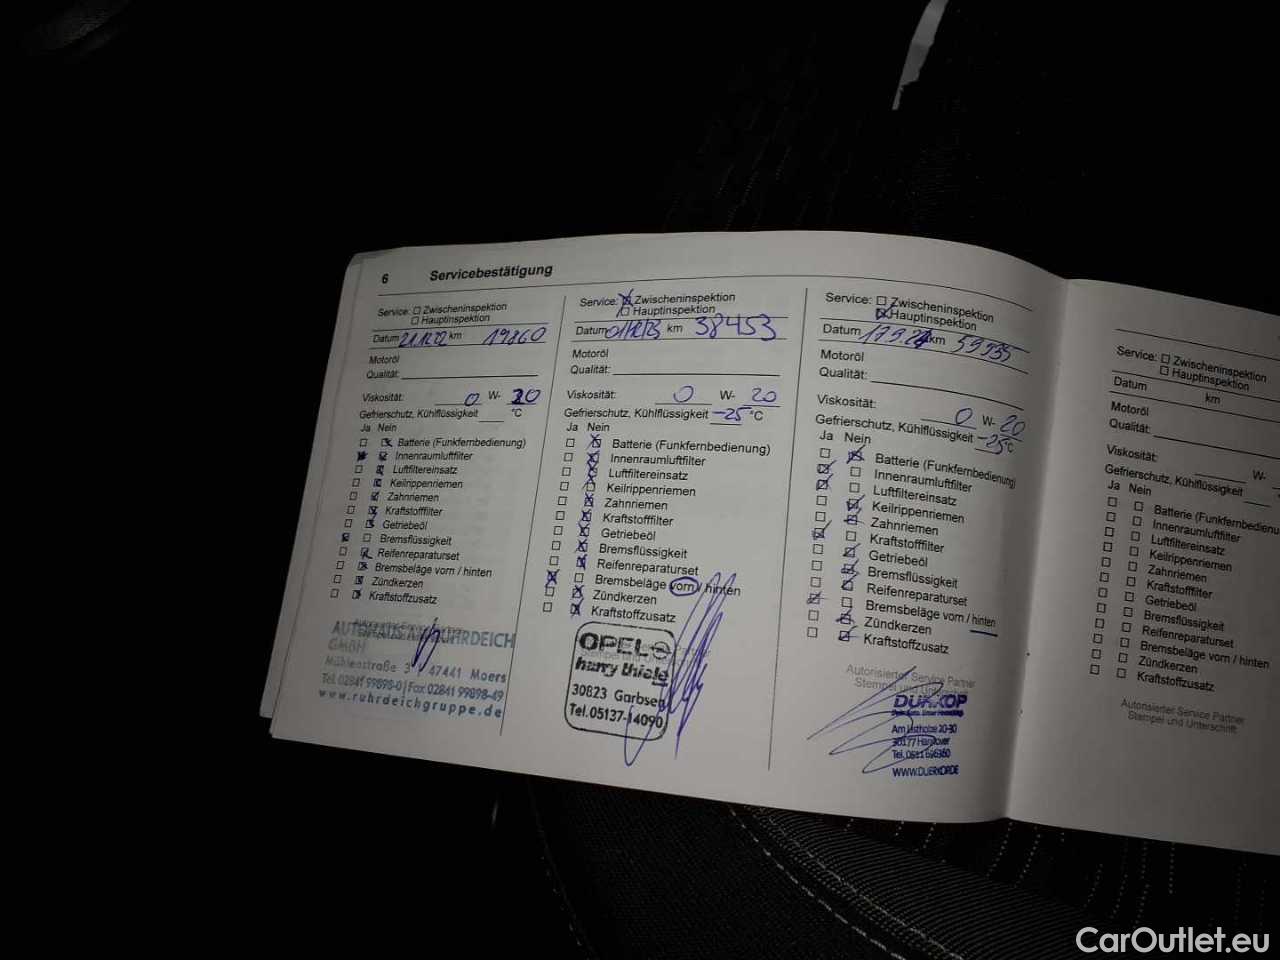 6 Servicebestätigung
Service: Zwischeninspektion
Hauptinspektion
Datum 21.12.22 km 19860
Motoröl
Qualität:
Viskosität: 0 W- 20
Gefrierschutz, Kühlflüssigkeit °C
Ja Nein
Batterie (Funkfernbedienung)
Innenraumluftfilter
Luftfiltereinsatz
Keilrippenriemen
Zahnriemen
Kraftstofffilter
Getriebeöl
Bremsflüssigkeit
Reifenreparaturset
Bremsbeläge vorn / hinten
Zündkerzen
Kraftstoffzusatz
AUTOHAUS RUHRDEICH
GmbH
Mühlenstraße 47441 Moers
Tel. 02841 99898-0 | Fax 02841 99898-49
www.ruhrdeichgruppe.de
Service: Zwischeninspektion
Hauptinspektion
Datum 01/12/23 km 38453
Motoröl
Qualität:
Viskosität: 0 W- 20
Gefrierschutz, Kühlflüssigkeit -25 °C
Ja Nein
Batterie (Funkfernbedienung)
Innenraumluftfilter
Luftfiltereinsatz
Keilrippenriemen
Zahnriemen
Kraftstofffilter
Getriebeöl
Bremsflüssigkeit
Reifenreparaturset
Bremsbeläge vorn / hinten
Zündkerzen
Kraftstoffzusatz
Stempel und Unterschrift
OPEL
harry thiele
30823 Garbsen
Tel.05137-14090
Service: Zwischeninspektion
Hauptinspektion
Datum 17.9.24 km 59935
Motoröl
Qualität:
Viskosität: 0 W- 20
Gefrierschutz, Kühlflüssigkeit -25°C
Ja Nein
Batterie (Funkfernbedienung)
Innenraumluftfilter
Luftfiltereinsatz
Keilrippenriemen
Zahnriemen
Kraftstofffilter
Getriebeöl
Bremsflüssigkeit
Reifenreparaturset
Bremsbeläge vorn / hinten
Zündkerzen
Kraftstoffzusatz
Autorisierter Service Partner
Stempel und Unterschrift
DÜRKOP
30177 Hannover
WWW.DUERKOP.DE
Service: Zwischeninspektion
Hauptinspektion
Datum km
Motoröl
Qualität:
Viskosität: W-
Gefrierschutz, Kühlflüssigkeit
Ja Nein
Batterie
Innenraumluftfilter
Luftfiltereinsatz
Keilrippenriemen
Zahnriemen
Kraftstofffilter
Getriebeöl
Bremsflüssigkeit
Reifenreparaturset
Bremsbeläge vorn / hinten
Zündkerzen
Kraftstoffzusatz
Autorisierter Service Partner
Stempel und Unterschrift
CarOutlet.eu